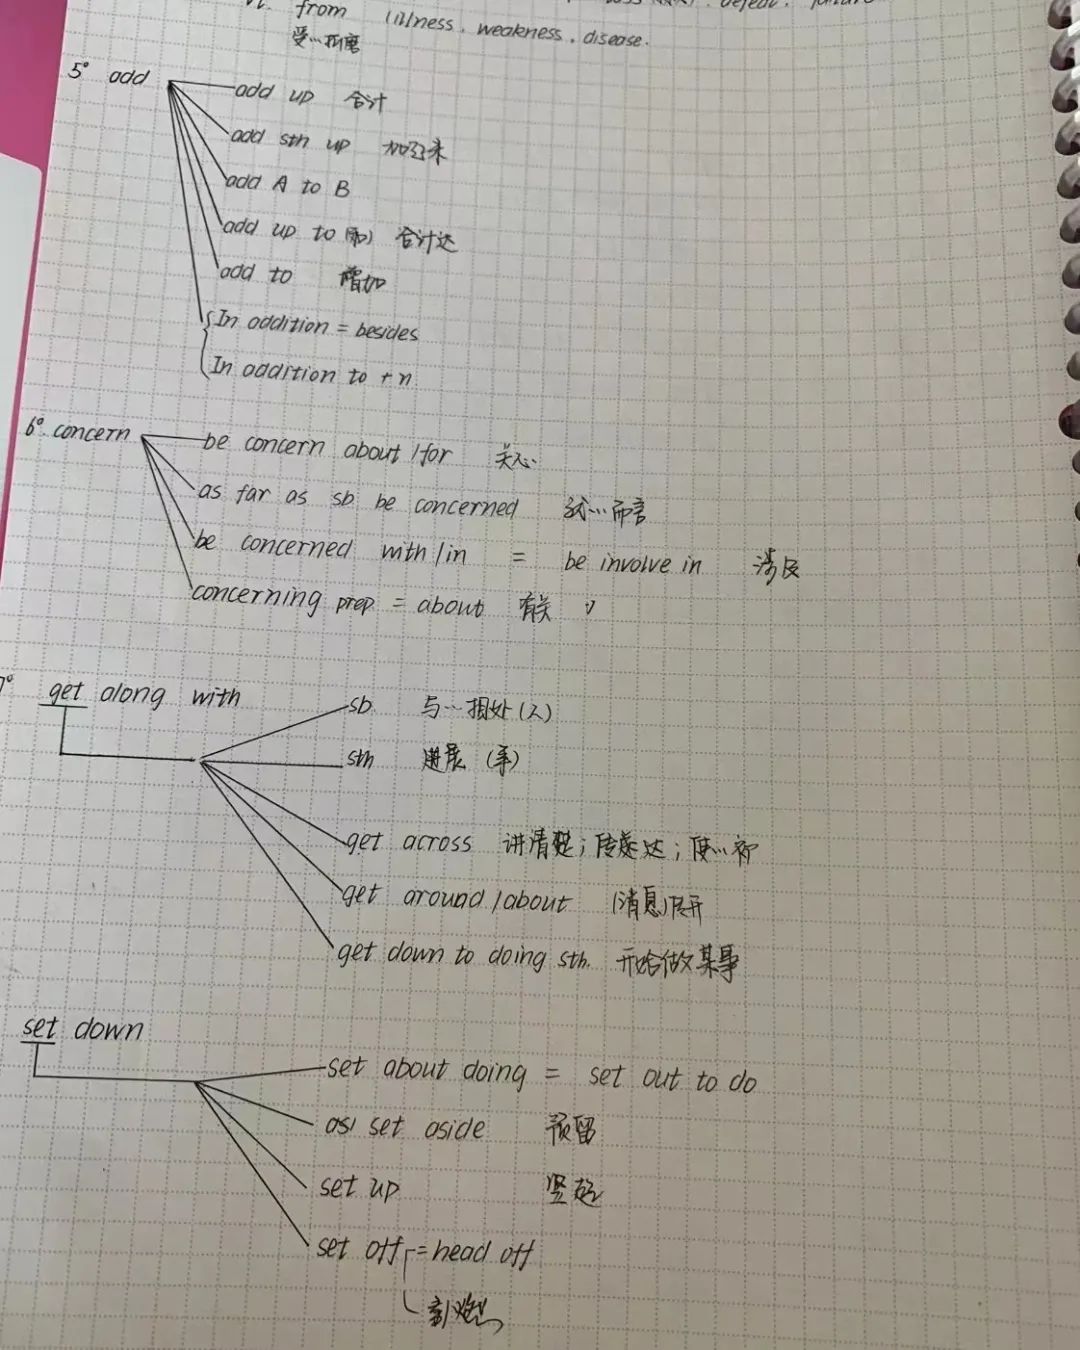 vi. from (illness, weakness, disease.
受…折磨
5° add
add up 合计
add sth up 加起来
add A to B
add up to (和) 合计达
add to 增加
In addition = besides
In addition to + n
6° concern
be concern about / for 关心
as far as sb be concerned 就…而言
be concerned with / in = be involve in 涉及
concerning prep = about 有关
7° get along with
sb 与…相处(人)
sth 进展 (事)
get across 讲清楚; 传达;
get around / about (消息)
get down to doing sth. 开始做某事
set down
set about doing = set out to do
set aside 预留
set up 竖起
set off = head off